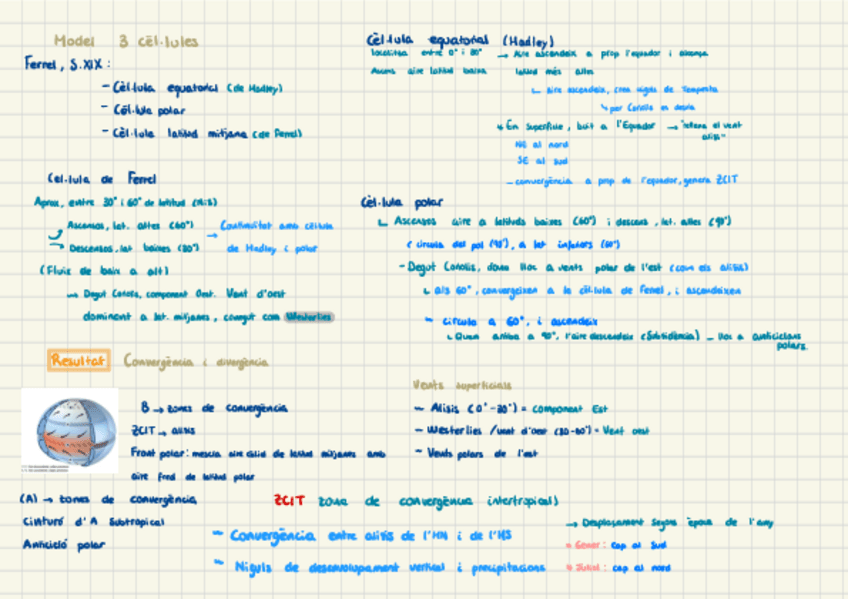 Model 3 cèl·lules
Ferrel, S.XIX:
- Cèl·lula equatorial (de Hadley)
- Cèl·lula polar
- Cèl·lula latitud mitjana (de Ferrel)
Cèl·lula equatorial (Hadley)
localitza entre 0° i 30° → Aire ascendeix a prop l'equador i
Ascens aire latitud baixa latitud més altes
aire ascendeix, crea niguls de Tempesta
per Coriolis es desvia
En superfície, buit a l'Equador → "
alisis"
NE al nord
SE al sud
- convergència a prop de l'equador, genera ZCIT
Cel·lula de Ferrel
Aprox, entre 30° i 60° de latitud (N i S)
Ascensos, lat. altes (60°)
Descensos, lat baixes (30°)
→ Continuïtat amb cèl·lula
de Hadley i polar
(Fluix de baix a alt)
Degut Coriolis, component Oest. Vent d'oest
dominant a lat. mitjanes, conegut com Westerlies
Cèl·lula polar
Ascensos aire a latituds baixes (60°) i descens, lat. altes (90°)
(circula del pol (90°), a lat inferiors (60°)
- Degut Coriolis, dona lloc a vents polar de l'est (com els alisis)
als 60°, convergeixen a la cèl·lula de Ferrel, i ascendeixen
- circula a 60°, i ascendeix
Quan arriba a 90°, l'aire descendeix (Subsidència) - lloc a anticiclons
polars.
Resultat Convergència i divergència
B → zones de convergència
ZCIT → alisis
Front polar: mescla aire càlid de latitud mitjanes amb
aire fred de latitud polar
Vents superficials
- Alisis (0°-30°) = component Est
- Westerlies / vent d'oest (30-60°) = Vent oest
- Vents polars de l'est
(A) → zones de convergència
Cinturó d'A Subtropical
Anticicló polar
ZCIT zona de convergència intertropical)
- Convergència entre alisis de l'HN i de l'HS
- Niguls de desenvolupament vertical i precipitacions
→ Desplaçament segons època de l'any
Gener: cap al Sud
Juliol: cap al nord